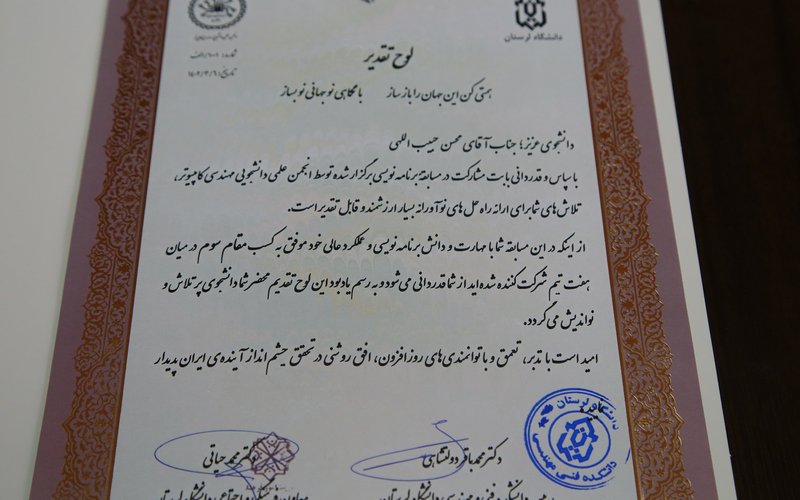 دانشگاه لرستان
شماره: ۶۰۰۱/الف
تاریخ: ۱۴۰۲/۳/۶
لوح تقدیر
همتی کن این جهان را باز ساز با نگاهی نو جهانی نو بساز
دانشجوی عزیز؛ جناب آقای محسن حبیب اللهی
با سپاس و قدردانی بابت مشارکت در مسابقه برنامه نویسی برگزار شده توسط انجمن علمی دانشجویی مهندسی کامپیوتر،
تلاش های شما برای ارائه راه حل های نوآورانه بسیار ارزشمند و قابل تقدیر است.
از اینکه در این مسابقه شما با مهارت و دانش برنامه نویسی و عملکرد عالی خود موفق به کسب مقام سوم در میان
هفت تیم شرکت کننده شده اید از شما قدردانی می شود و به رسم یادبود این لوح تقدیم محضر شما دانشجوی پر تلاش و
نواندیش می گردد.
امید است با تدبر، تعمق و با توانمندی های روز افزون، افق روشنی در تحقق چشم انداز آینده ی ایران پدیدار
نمایید.
دانشگاه لرستان
دانشکده فنی مهندسی
دکتر محمد باقر دولتشاهی
دکتر محمد حیاتی